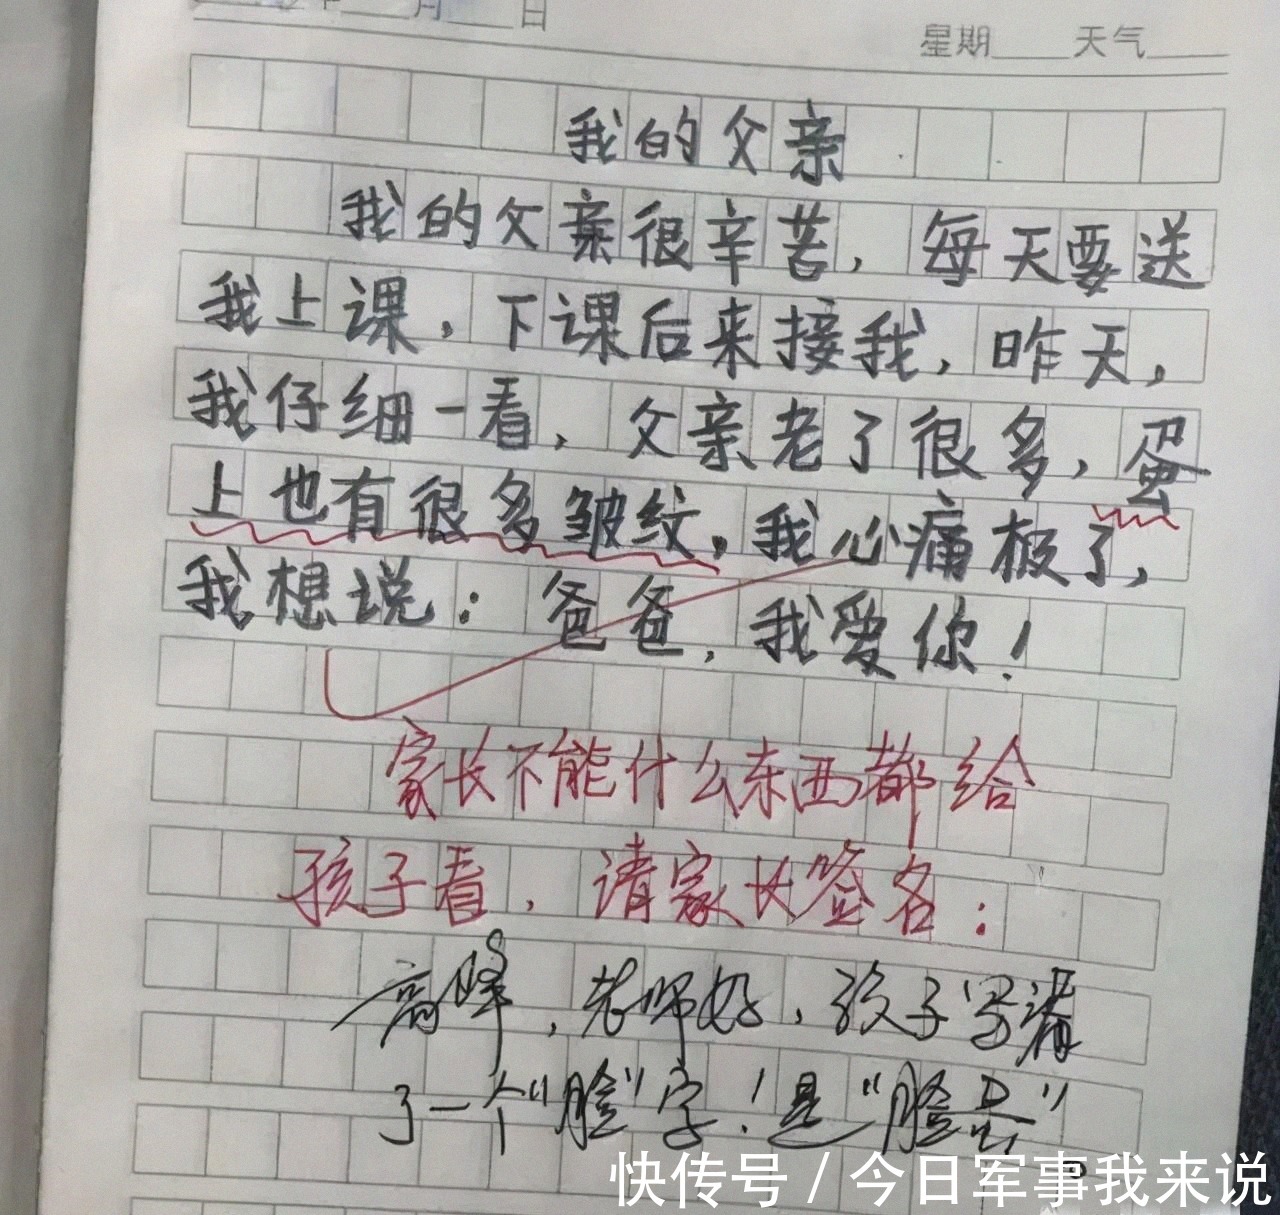 月 日
星期 天气
我的父亲
我的父亲很辛苦，每天要送
我上课，下课后来接我，昨天，
我仔细一看，父亲老了很多，蛋
上也有很多皱纹，我心痛极了，
我想说：爸爸，我爱你！
家长不能什么东西都给
孩子看，请家长签名：
高峰，老师好，孩子写漏
了一个“脸”字！是“脸蛋”
快传号/今日军事我来说